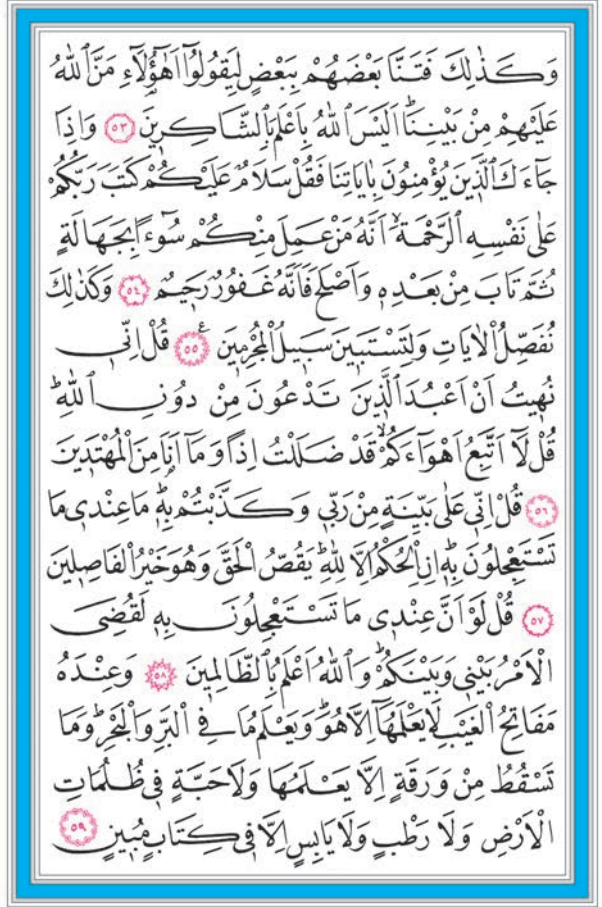 وَكَذٰلِكَ فَتَنَّا بَعْضَهُمْ بِبَعْضٍ لِيَقُولُٓوا اَهٰٓؤُ۬لَٓاءِ مَنَّ اللّٰهُ
عَلَيْهِمْ مِنْ بَيْنِنَاۜ اَلَيْسَ اللّٰهُ بِاَعْلَمَ بِالشَّاكِرٖينَ ﴿٥٣﴾ وَاِذَا
جَٓاءَكَ الَّذٖينَ يُؤْمِنُونَ بِاٰيَاتِنَا فَقُلْ سَلَامٌ عَلَيْكُمْ كَتَبَ رَبُّكُمْ
عَلٰى نَفْسِهِ الرَّحْمَةَۙ اَنَّهُ مَنْ عَمِلَ مِنْكُمْ سُٓوءًا بِجَهَالَةٍ
ثُمَّ تَابَ مِنْ بَعْدِهٖ وَاَصْلَحَ فَاَنَّهُ غَفُورٌ رَحٖيمٌ ﴿٥٤﴾ وَكَذٰلِكَ
نُفَصِّلُ الْاٰيَاتِ وَلِتَسْتَبٖينَ سَبٖيلُ الْمُجْرِمٖينَ ﴿٥٥﴾ ع قُلْ اِنّٖي
نُهٖيتُ اَنْ اَعْبُدَ الَّذٖينَ تَدْعُونَ مِنْ دُونِ اللّٰهِۜ
قُلْ لَٓا اَتَّبِعُ اَهْوَٓاءَكُمْۙ قَدْ ضَلَلْتُ اِذًا وَمَٓا اَنَا۬ مِنَ الْمُهْتَدٖينَ
﴿٥٦﴾ قُلْ اِنّٖي عَلٰى بَيِّنَةٍ مِنْ رَبّٖي وَكَذَّبْتُمْ بِهٖۜ مَا عِنْدٖي مَا
تَسْتَعْجِلُونَ بِهٖۜ اِنِ الْحُكْمُ اِلَّا لِلّٰهِۜ يَقُصُّ الْحَقَّ وَهُوَ خَيْرُ الْفَاصِلٖينَ
﴿٥٧﴾ قُلْ لَوْ اَنَّ عِنْدٖي مَا تَسْتَعْجِلُونَ بِهٖ لَقُضِيَ
الْاَمْرُ بَيْنٖي وَبَيْنَكُمْۜ وَاللّٰهُ اَعْلَمُ بِالظَّالِمٖينَ ﴿٥٨﴾ وَعِنْدَهُ
مَفَاتِحُ الْغَيْبِ لَا يَعْلَمُهَٓا اِلَّا هُوَۜ وَيَعْلَمُ مَا فِي الْبَرِّ وَالْبَحْرِۜ وَمَا
تَسْقُطُ مِنْ وَرَقَةٍ اِلَّا يَعْلَمُهَا وَلَا حَبَّةٍ فٖي ظُلُمَاتِ
الْاَرْضِ وَلَا رَطْبٍ وَلَا يَابِسٍ اِلَّا فٖي كِتَابٍ مُبٖينٍ ﴿٥٩﴾